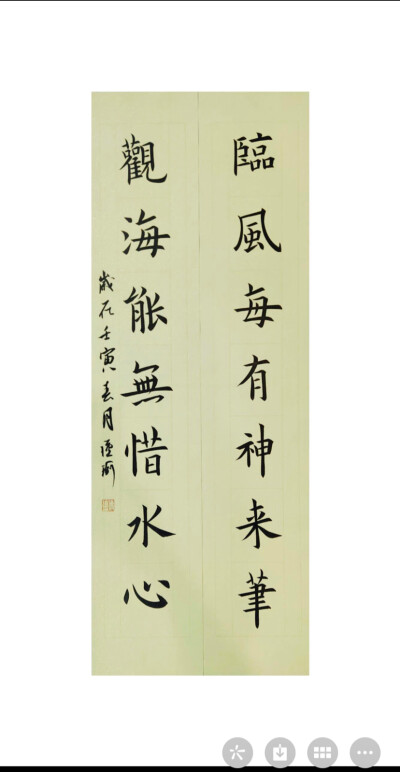 臨風每有神来筆
觀海能無惜水心
歲在壬寅春月